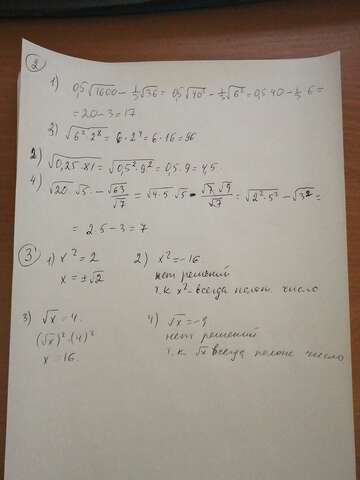 ②
1) 0,5√1600 - 1/2√36 = 0,5√40² - 1/2√6² = 0,5·40 - 1/2·6 =
= 20-3=17
3) √6²·2⁸ = 6·2⁴ = 6·16=96
2) √0,25·81 = √0,5²·9² = 0,5·9 = 4,5
4) √20·√5 - √63/√7 = √4·5·√5 - √7·√9/√7 = √2²·5² - √3² =
= 2·5-3=7
③ 1) x²=2
x = ±√2
2) x²=-16
нет решений
т.к x²- всегда полож. число
3) √x = 4
(√x)² = (4)²
x = 16.
4) √x = -9
нет решений
т.к √x всегда полож число